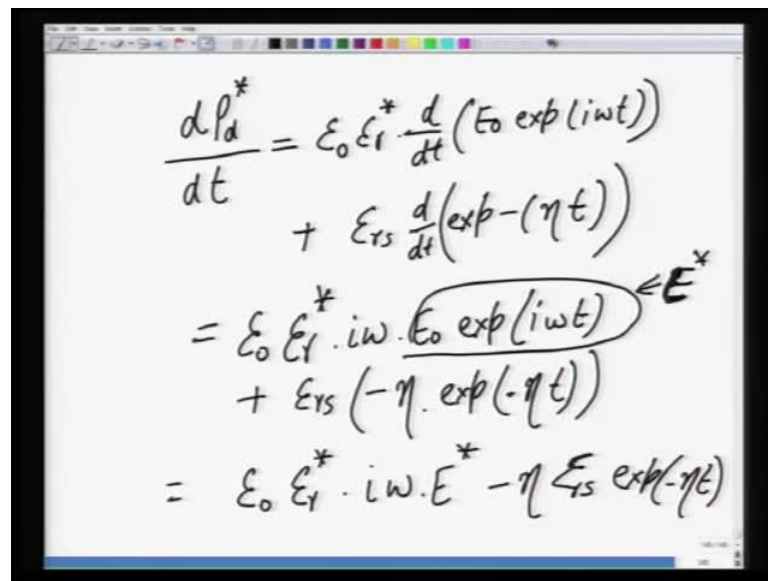 dP_d^* / dt = ε_0 ε_r^* · d/dt (E_0 exp(iωt))
+ ε_rs d/dt (exp-(ηt))
= ε_0 ε_r^* · iω · E_0 exp(iωt) ← E^*
+ ε_rs (-η. exp(-ηt))
= ε_0 ε_r^* · iω. E^* - η ε_rs exp(-ηt)